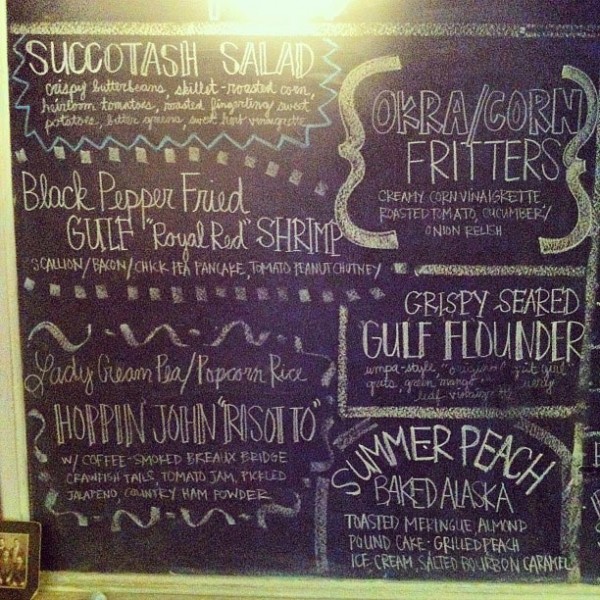 SUCCOTASH SALAD
crispy butterbeans, skillet-roasted corn,
heirloom tomatoes, roasted fingerling sweet
potatoes, bitter greens, sweet herb vinaigrette
Black Pepper Fried
GULF "Royal Red" SHRIMP
SCALLION/BACON/CHICK PEA PANCAKE, TOMATO PEANUT CHUTNEY
Lady Cream Pea/Popcorn Rice
HOPPIN' JOHN "RISOTTO"
W/ COFFEE-SMOKED BREAUX BRIDGE
CRAWFISH TAILS, TOMATO JAM, PICKLED
JALAPENO, COUNTRY HAM POWDER
OKRA/CORN
FRITTERS
CREAMY CORN VINAIGRETTE
ROASTED TOMATO, CUCUMBER/
ONION RELISH
CRISPY SEARED
GULF FLOUNDER
green mango
leaf
SUMMER PEACH
BAKED ALASKA
TOASTED MERINGUE ALMOND
POUND CAKE - GRILLED PEACH
ICE CREAM, SALTED BOURBON CARAMEL